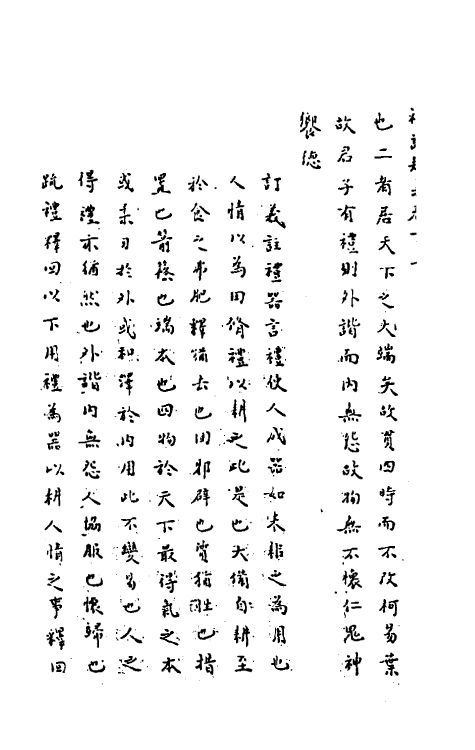 也二者居天下之大端矣故貫四時而不改柯易葉
故君子有禮則外諧而內無怨故物無不懷仁鬼神
饗德
訂義註禮器言禮使人成器如耒耜之為用也
人情以為田脩禮以耕之此是也大備自耕至
於食之弗肥釋猶去也回邪辟也質猶性也措
置也箭蓧也端本也四物於天下最得氣之本
或柔刃於外或和澤於內用此不變易也人之
得禮亦猶然也外諧內無怨人協服也懷歸也
疏禮釋回以下用禮為器以耕人情之事釋回